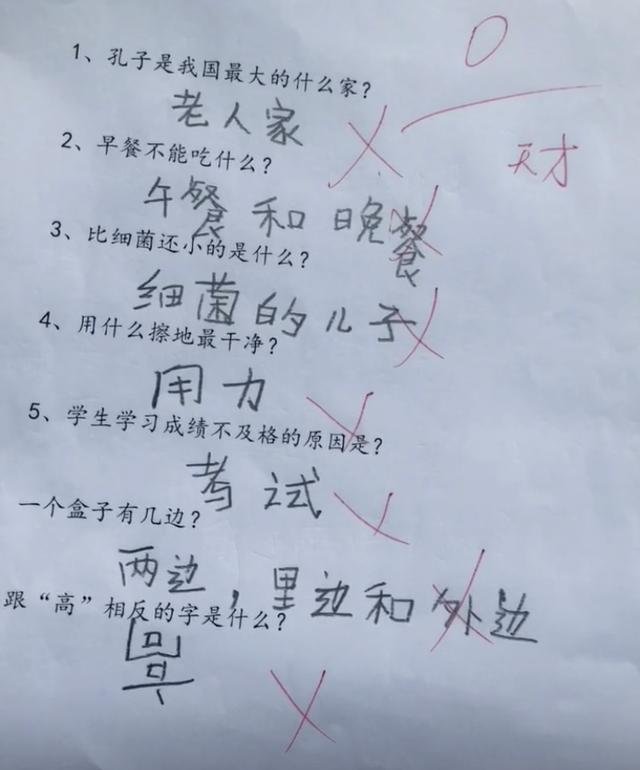 0
天才
1、孔子是我国最大的什么家？
老人家
2、早餐不能吃什么？
午餐和晚餐
3、比细菌还小的是什么？
细菌的儿子
4、用什么擦地最干净？
用力
5、学生学习成绩不及格的原因是？
考试
一个盒子有几边？
两边，里边和外边
跟“高”相反的字是什么？